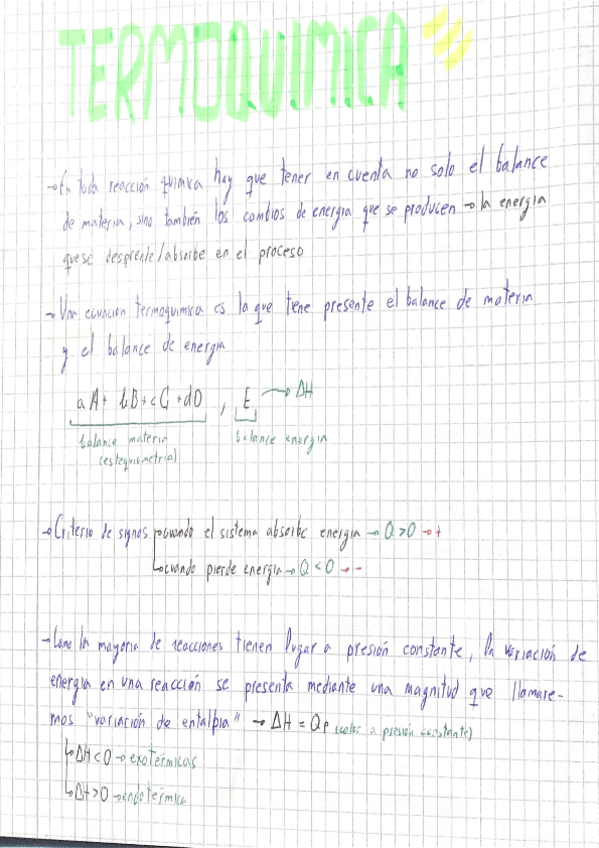 TERMOQUIMICA
→ En toda reacción química hay que tener en cuenta no solo el balance
de materia, sino también los cambios de energía que se producen → la energía
que se desprende/absorbe en el proceso
→ Una ecuación termoquímica es la que tiene presente el balance de materia
y el balance de energía
aA + bB + cC + dD , E → ΔH
balance materia balance energía
(estequiometria)
→ Criterio de signos cuando el sistema absorbe energía → Q > 0 → +
cuando pierde energía → Q < 0 → -
→ Como la mayoría de reacciones tienen lugar a presión constante, la variación de
energía en una reacción se presenta mediante una magnitud que llamare-
mos "variación de entalpía" → ΔH = Qp (calor a presión constante)
ΔH < 0 → exotérmicas
ΔH > 0 → endotérmica